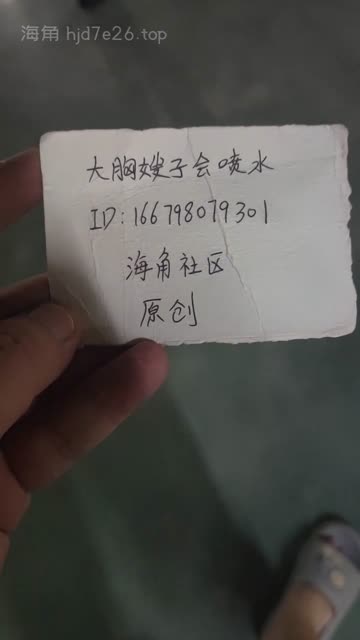 海角 hjd7e26.top
大胸嫂子会喷水
ID:166798079301
海角社区
原创